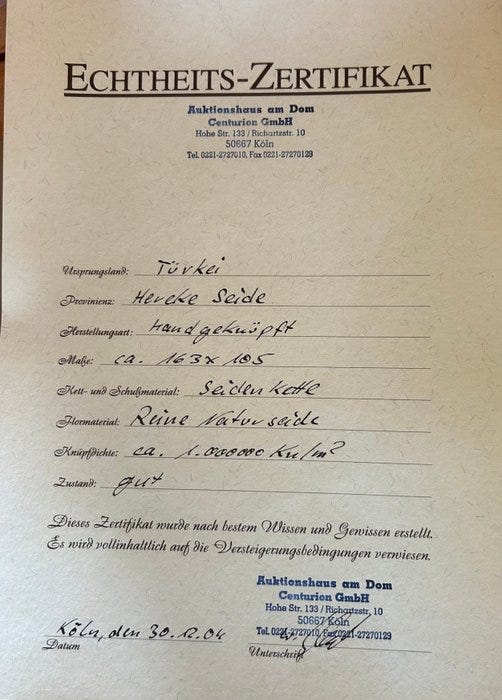 ECHTHEITS-ZERTIFIKAT
Auktionshaus am Dom
Centurion GmbH
Hohe Str. 133 / Richartzstr. 10
50667 Köln
Tel. 0221-2727010, Fax 0221-27270129
Ursprungsland: Türkei
Provinienz: Hereke Seide
Herstellungsart: Handgeknüpft
Maße: ca. 163x105
Kett- und Schußmaterial: Seidenkette
Flormaterial: Reine Naturseide
Knüpfdichte: ca. 1.000000 Kn/m²
Zustand: gut
Dieses Zertifikat wurde nach bestem Wissen und Gewissen erstellt.
Es wird vollinhaltlich auf die Versteigerungsbedingungen verwiesen.
Auktionshaus am Dom
Centurion GmbH
Hohe Str. 133 / Richartzstr. 10
50667 Köln
Tel. 0221-2727010, Fax 0221-27270129
Köln, den 30.12.04
Datum
Unterschrift